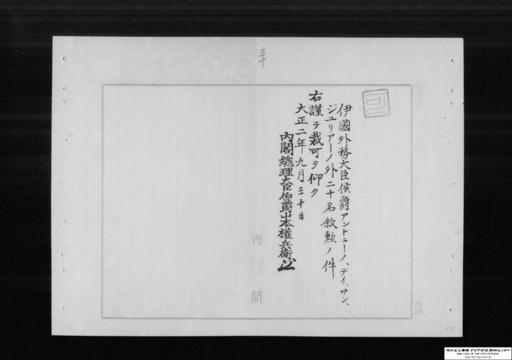 伊國外務大臣侯爵アントニーノ、デイ、サン、
ジユリアーノ外二十名敘勲ノ件
右謹テ裁可ヲ仰ク
大正二年九月三十日
内閣總理大臣伯爵山本權兵衞
内閣